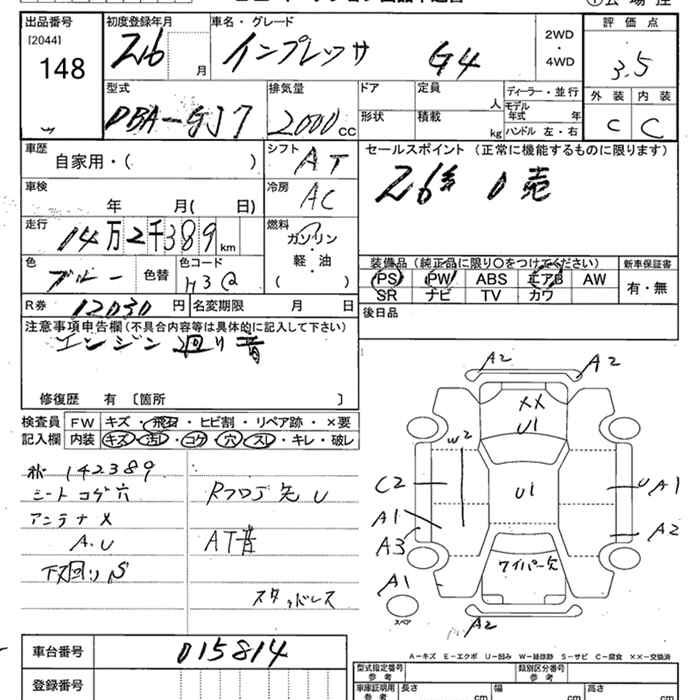 出品番号 初度登録年月 車名・グレード 評価点
[2044] 148 26 月 インプレッサ G4 2WD・4WD 3.5
型式 排気量 ドア 定員 人 ディーラー・並行 外装 内装
DBA-GJ7 2000 CC 形状 積載 kg モデル年式 年 ハンドル 左・右 C C
車歴 自家用・( ) シフト AT セールスポイント (正常に機能するものに限ります)
車検 年 月( 日) 冷房 AC
走行 14万2千389 km 燃料 ガソリン・軽・油 ( )
色 ブルー 色替 色コード H3Q 装備品 (純正品に限り○をつけてください) 新車保証書
PS PW ABS エアB AW 有・無
SR ナビ TV カワ
R券 12030 円 名変期限 月 日 後日品
注意事項申告欄(不具合内容等は具体的に記入して下さい)
エンジン廻り音
修復歴 有 〔箇所 〕
検査員 FW キズ・飛石・ヒビ割・リペア跡・×要
記入欄 内装 キズ・汚レ・コゲ・穴・スレ・キレ・破レ
142389
シートコゲ穴
アンテナ×
A.U
下回りS
AT音
スタッドレス
A2 A2
XX
U1
W2
C2 U1 UA1
A1
A3 A2
A1 ワイパー欠
スペア A2
A-キズ E-エクボ U-凹み W-補修跡 S-サビ C-腐食 ××-交換済
車台番号 015814
登録番号
型式指定番号 参考 類別区分番号 参考
車庫証明用 参考 長さ cm 幅 cm 高さ cm